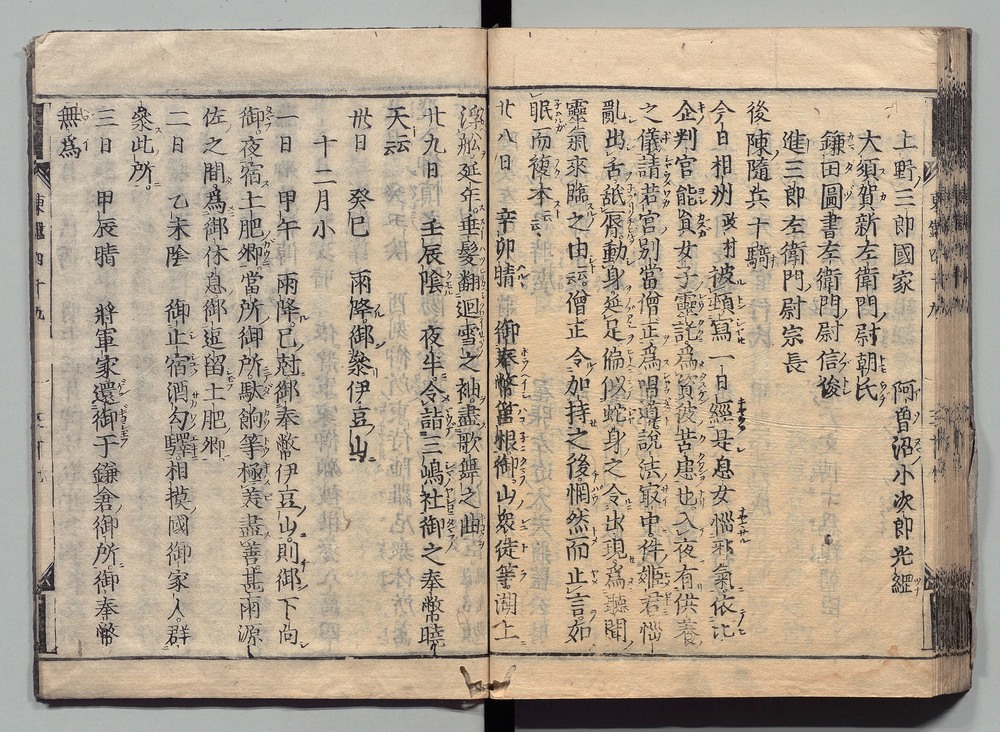 上野三郎國家　阿曽沼小次郎光經
大須賀新左衛門尉朝氏
鎌田圖書左衛門尉信俊
進三郎左衛門尉宗長
後陳隨兵十騎
今日相州政村被頓寫一日經是息女惱邪氣依比
企判官能員女子靈託為資彼苦患也入夜有供養
之儀請若宮別當僧正為唱導說法寂中件姬君惱
亂出舌舐脣動身延足偏似蛇身之令出現為聽聞
靈氣來臨之由云僧正令加持之後惘然而止言如
眠而複本云
廿八日　辛卯晴　御奉幣筥根御山衆徒等湖上
浮舩延年垂髮翻迴雪之袖盡歌舞之曲
廿九日　壬辰陰　夜半令詣三嶋社御之奉幣曉
天云云
卅日　癸巳　雨降御參伊豆山
十二月小
一日　甲午　雨降巳尅御奉幣伊豆山則御下向
御夜宿土肥鄉當所御所馱餉等極美盡善甚雨源
佐之間為御休息御逗留土肥鄉
二日　乙未陰　御止宿酒勾驛相摸國御家人群
參此所
三日　甲辰晴　將軍家還御于鎌倉御所御奉幣
無為
東鑑四十九